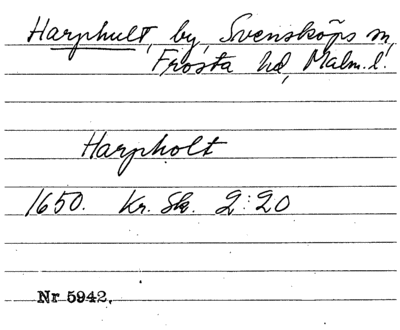 Harphult, by, Svensköps sn,
Frosta hd, Malm. l.
Harpholt
1650. Kr. Sk. 2:20
Nr 5942.